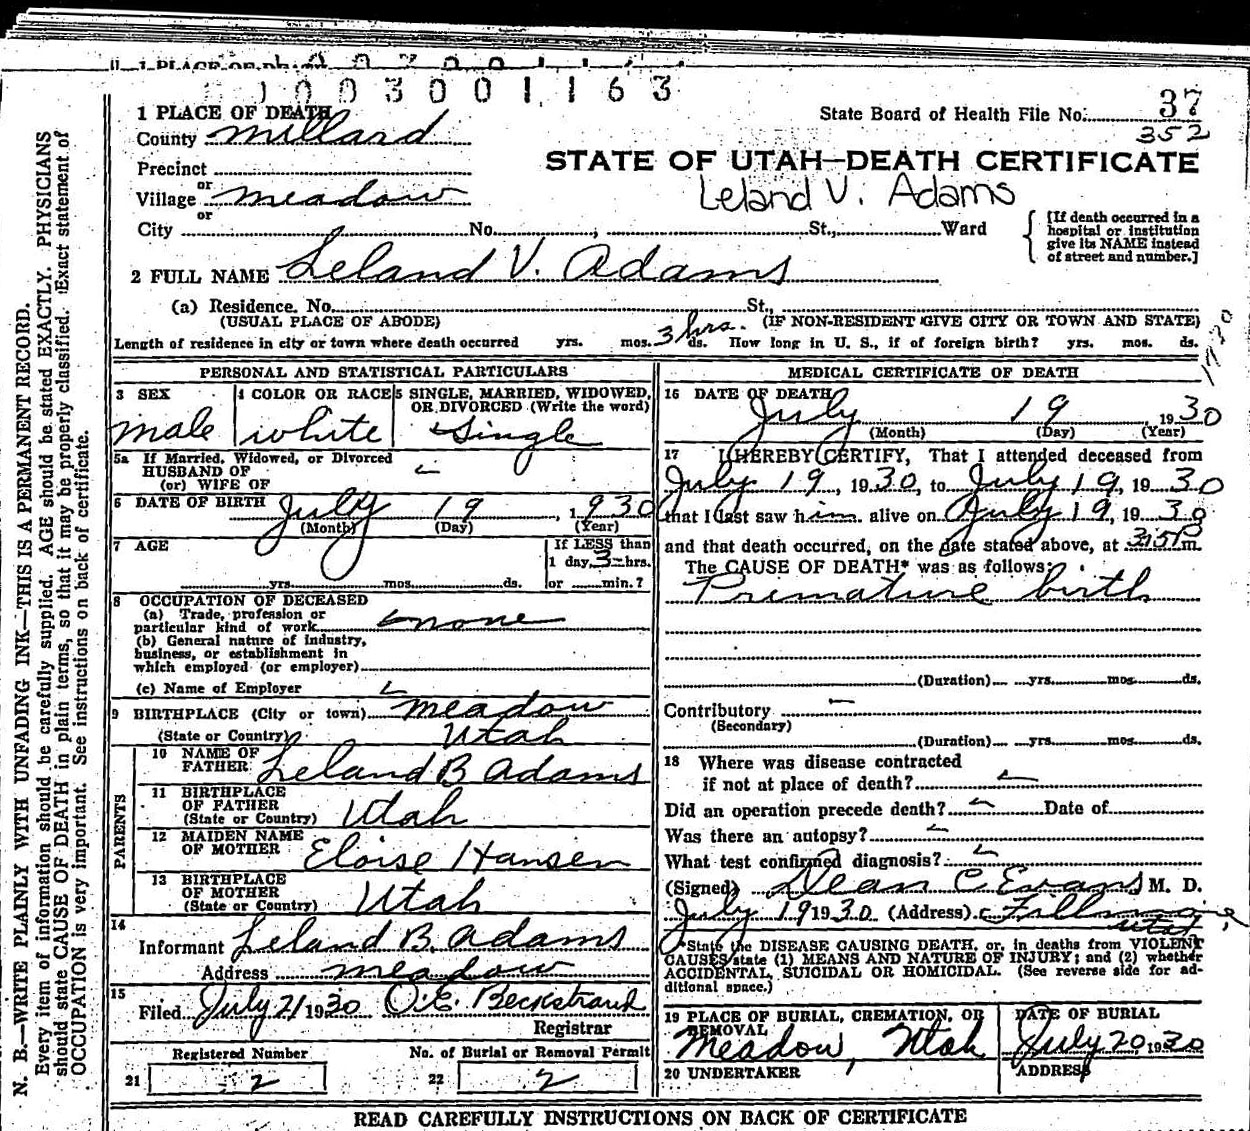 1003001163
1 PLACE OF DEATH
State Board of Health File No. 37
352
County Millard
STATE OF UTAH—DEATH CERTIFICATE
Precinct
Leland V. Adams
or
Village Meadow
or
City No. , St., Ward
[If death occurred in a
hospital or institution
give its NAME instead
of street and number.]
2 FULL NAME Leland V. Adams
(a) Residence. No. St.,
(USUAL PLACE OF ABODE) (IF NON-RESIDENT GIVE CITY OR TOWN AND STATE)
Length of residence in city or town where death occurred yrs. mos. 3 hrs. ds. How long in U. S., if of foreign birth? yrs. mos. ds.
PERSONAL AND STATISTICAL PARTICULARS
3 SEX
male
4 COLOR OR RACE
white
5 SINGLE, MARRIED, WIDOWED,
OR DIVORCED (Write the word)
Single
5a If Married, Widowed, or Divorced
HUSBAND OF
(or) WIFE OF
6 DATE OF BIRTH July 19, 1930
(Month) (Day) (Year)
7 AGE
If LESS than
1 day, 3 hrs.
yrs. mos. ds. or min.?
8 OCCUPATION OF DECEASED
(a) Trade, profession or
particular kind of work none
(b) General nature of industry,
business, or establishment in
which employed (or employer)
(c) Name of Employer
9 BIRTHPLACE (City or town) Meadow
(State or Country) Utah
PARENTS
10 NAME OF
FATHER Leland B Adams
11 BIRTHPLACE
OF FATHER
(State or Country) Utah
12 MAIDEN NAME
OF MOTHER Eloise Hansen
13 BIRTHPLACE
OF MOTHER
(State or Country) Utah
14
Informant Leland B Adams
Address Meadow
15
Filed July 21 1930 O.E. Beckstrand
Registrar
Registered Number
21 2
No. of Burial or Removal Permit
22 2
MEDICAL CERTIFICATE OF DEATH
16 DATE OF DEATH
July 19 1930
(Month) (Day) (Year)
17 I HEREBY CERTIFY, That I attended deceased from
July 19, 1930, to July 19, 1930
that I last saw him alive on July 19, 1930
and that death occurred, on the date stated above, at 3:15 P m.
The CAUSE OF DEATH* was as follows:
Premature birth
(Duration) yrs. mos. ds.
Contributory
(Secondary)
(Duration) yrs. mos. ds.
18 Where was disease contracted
if not at place of death?
Did an operation precede death? Date of
Was there an autopsy?
What test confirmed diagnosis?
(Signed) Dean C Evans M. D.
July 19 1930 (Address) Fillmore,
Utah
*State the DISEASE CAUSING DEATH, or, in deaths from VIOLENT
CAUSES state (1) MEANS AND NATURE OF INJURY; and (2) whether
ACCIDENTAL, SUICIDAL OR HOMICIDAL. (See reverse side for ad-
ditional space.)
19 PLACE OF BURIAL, CREMATION, OR
REMOVAL
Meadow, Utah
DATE OF BURIAL
July 20 1930
20 UNDERTAKER
ADDRESS
READ CAREFULLY INSTRUCTIONS ON BACK OF CERTIFICATE
N. B.—WRITE PLAINLY WITH UNFADING INK—THIS IS A PERMANENT RECORD.
Every item of information should be carefully supplied. AGE should be stated EXACTLY. PHYSICIANS
should state CAUSE OF DEATH in plain terms, so that it may be properly classified. Exact statement of
OCCUPATION is very important. See instructions on back of certificate.